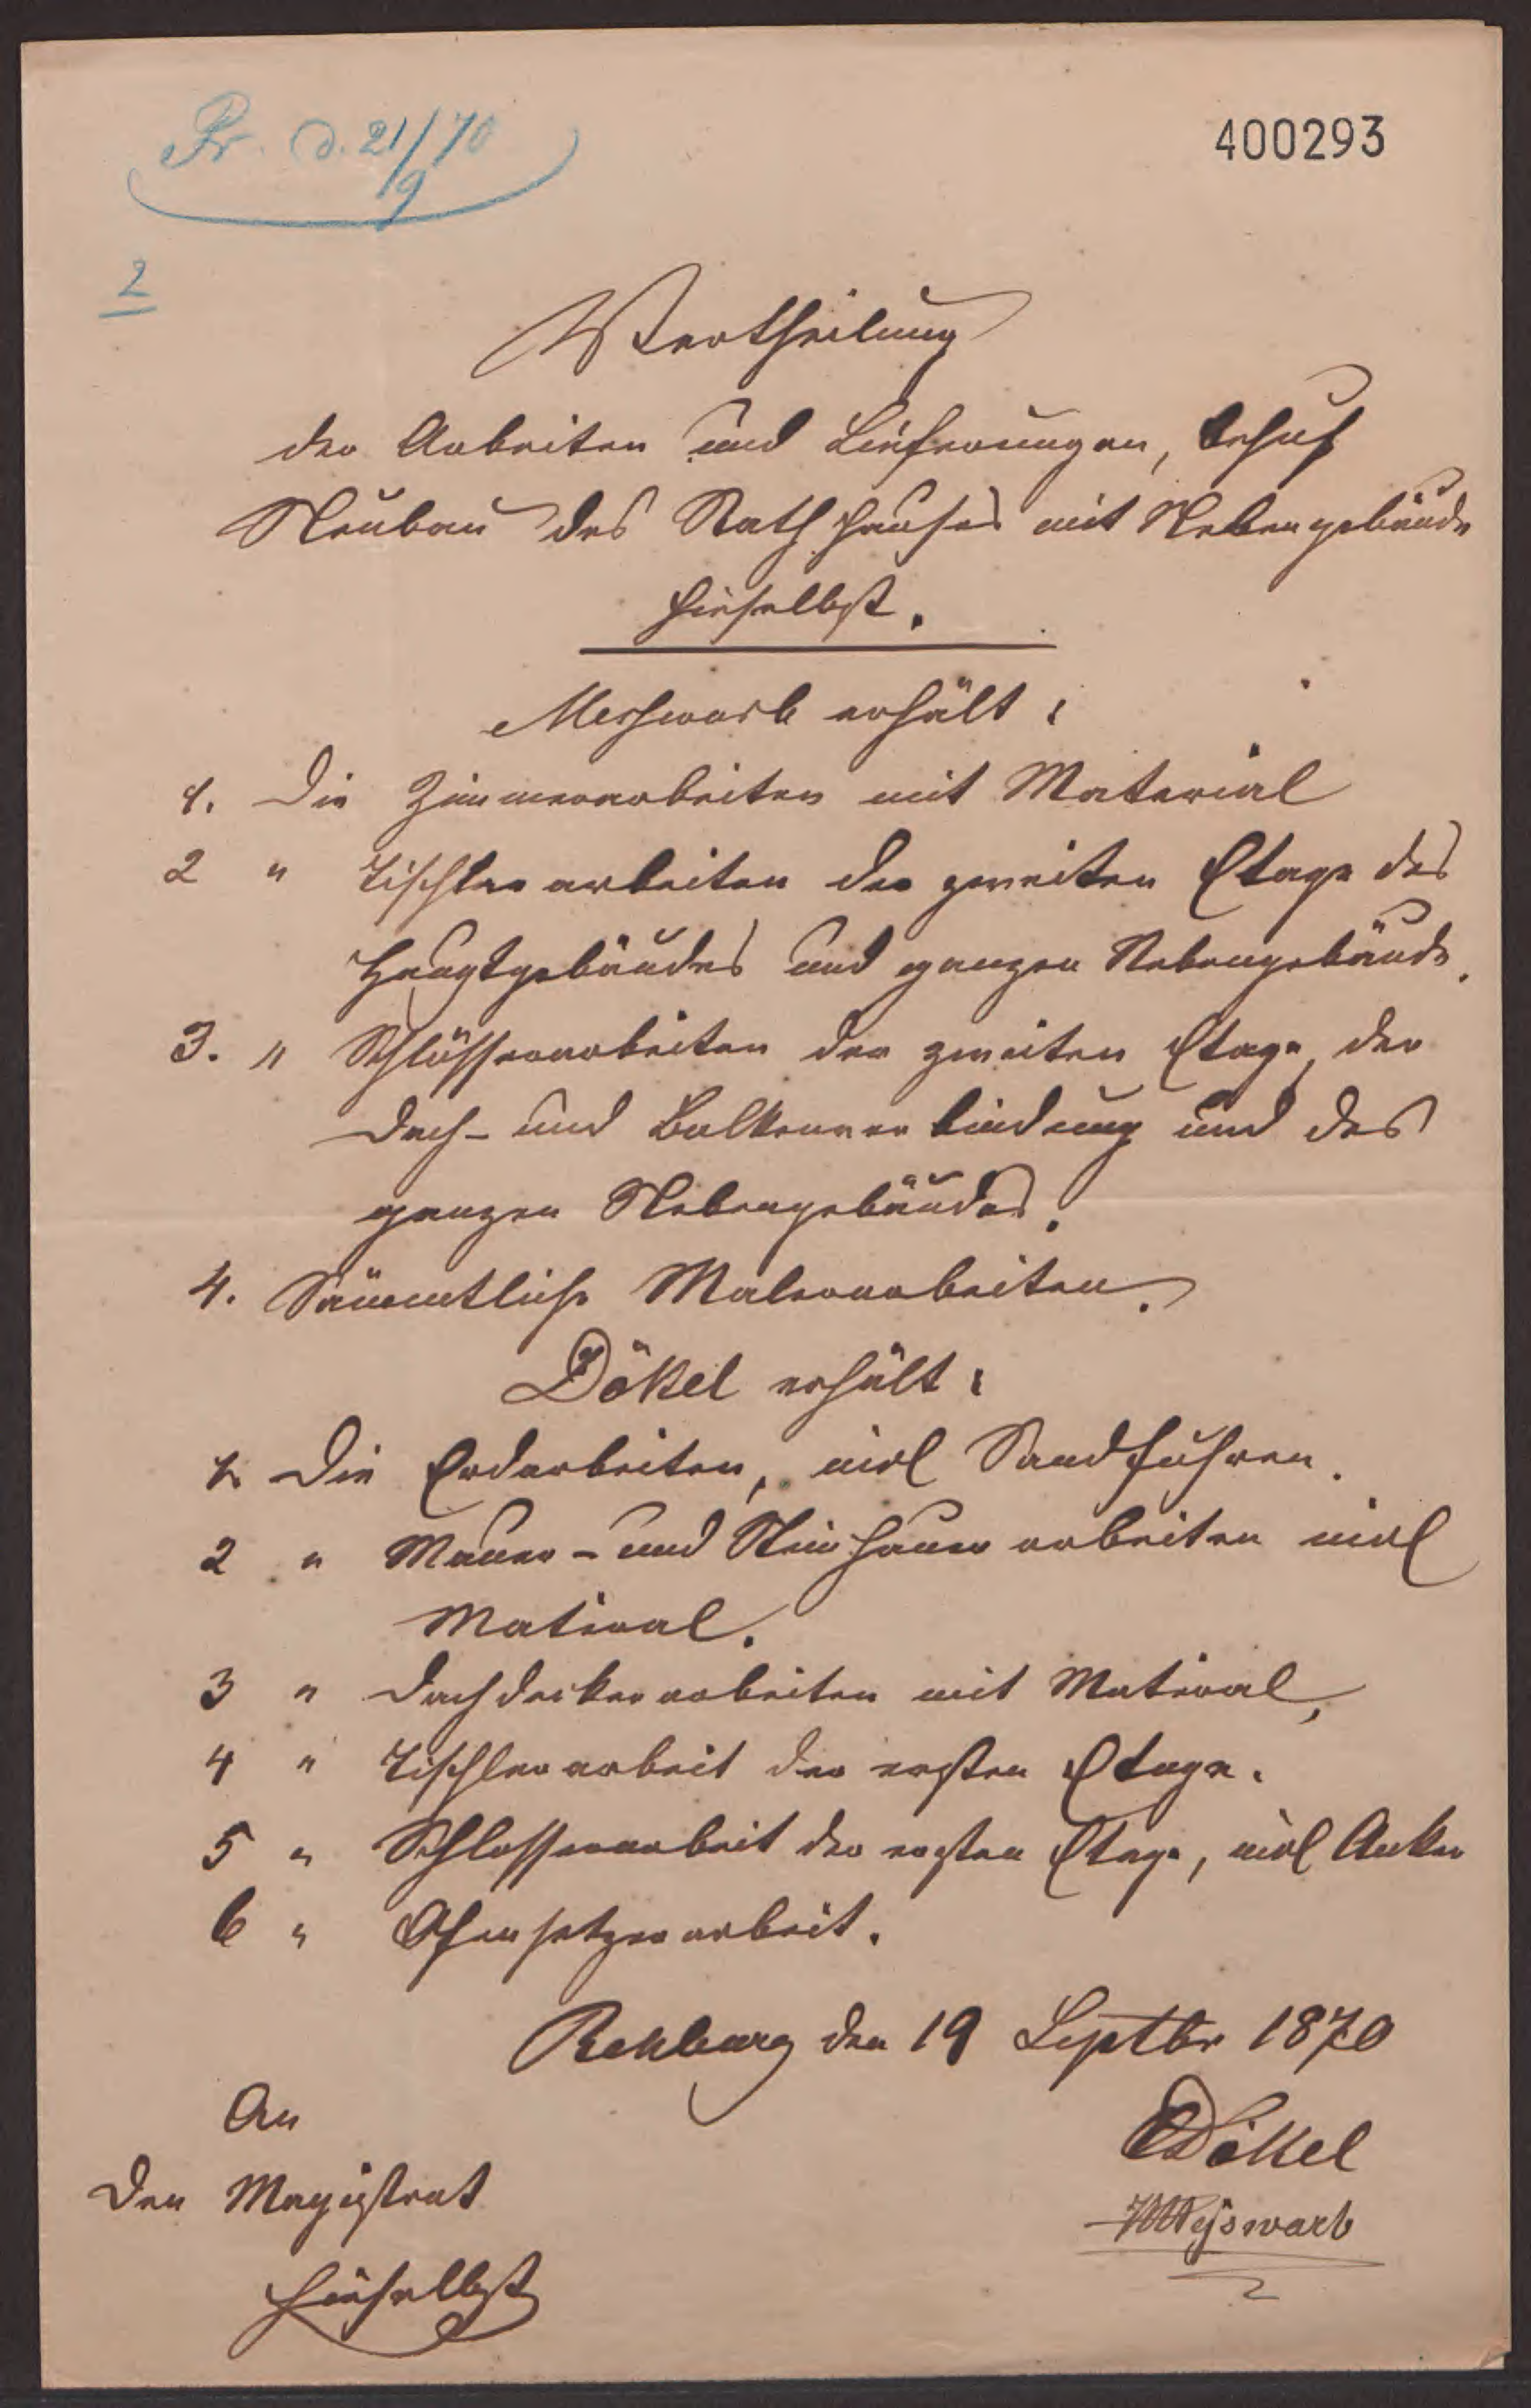 Pr. d. 21/9 70
400293
2
Vertheilung
der Arbeiten und Lieferungen, behuf
Neubau des Rathhauses mit Nebengebäude
hieselbst.
Messwarb erhält:
1. Die Zimmerarbeiten mit Material
2 " Tischlerarbeiten der zweiten Etage des
Hauptgebäudes und ganzen Nebengebäude.
3. " Schlösserarbeiten der zweiten Etage, der
Dach- und Balkenverbindung und des
ganzen Nebengebäudes.
4. Sämmtliche Malerarbeiten.
Dökel erhält:
1. Die Erdarbeiten, incl Sandfuhren.
2 " Mauer- und Steinhauerarbeiten incl
Material.
3 " Dachdeckerarbeiten mit Material,
4 " Tischlerarbeit der ersten Etage.
5 " Schlosserarbeit der ersten Etage, incl Anker
6 " Ofensetzerarbeit.
Rehburg den 19 Septbr 1870
An
Den Magistrat
hieselbst
Dökel